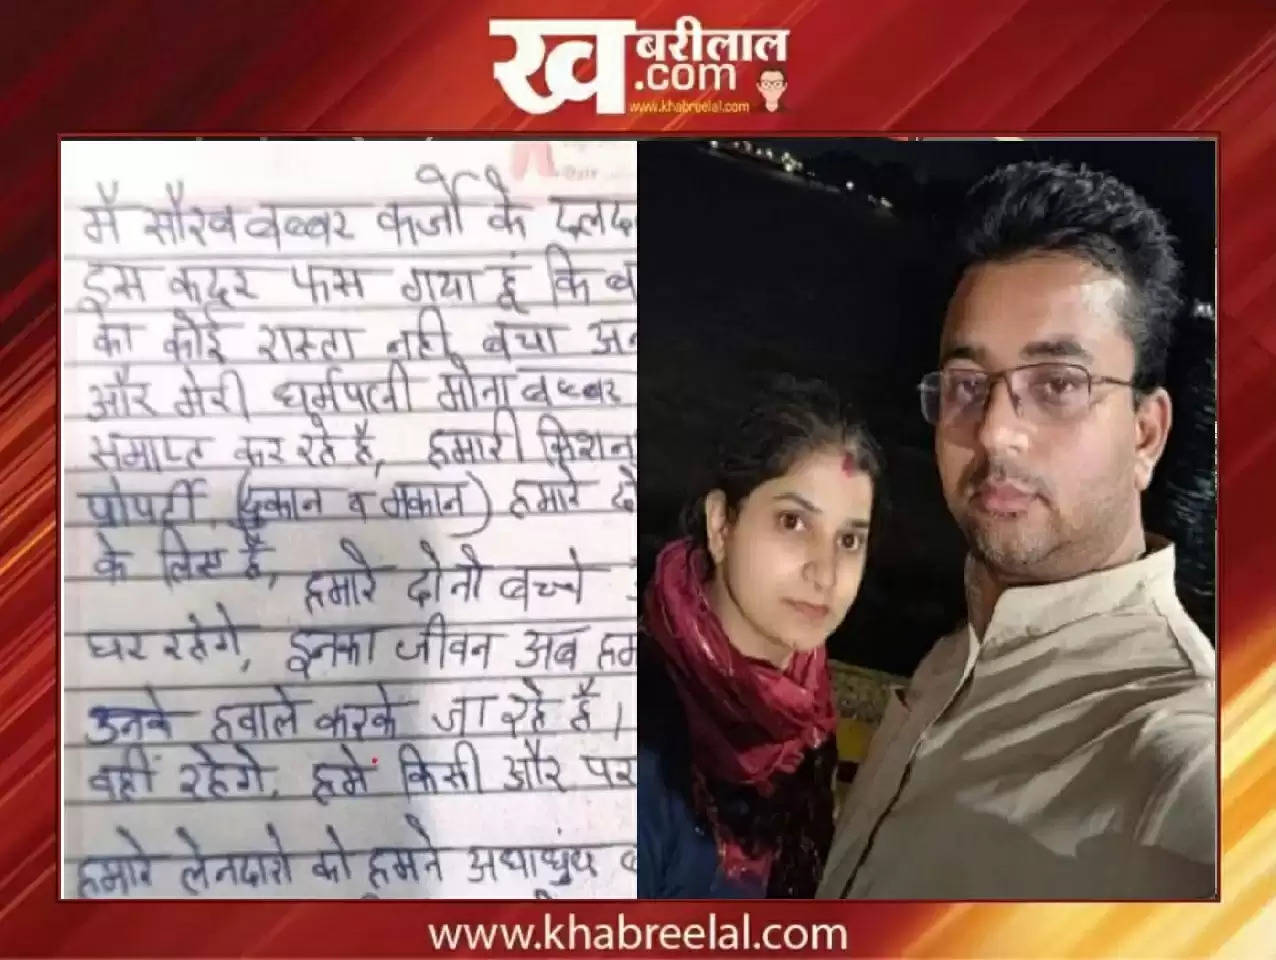 खबरीलाल
.com
www.khabreelal.com
मै सौरव बब्बर कर्जो के दलद
इस कदर फस गया हूं कि ब
का कोई रास्ता नही बचा
और मेरी धर्मपत्नी मोना बब्बर
समाप्त कर रहे है, हमारी किशन
प्रोपर्टी (दुकान व मकान) हमारे दो
के लिए है, हमारे दोनो बच्चे
घर रहेगे, इनका जीवन अब हम
उनके हवाले करके जा रहे है।
वहीं रहेगे, हमे किसी और पर
हमारे लेनदारो को हमने अंधाधुंध
www.khabreelal.com